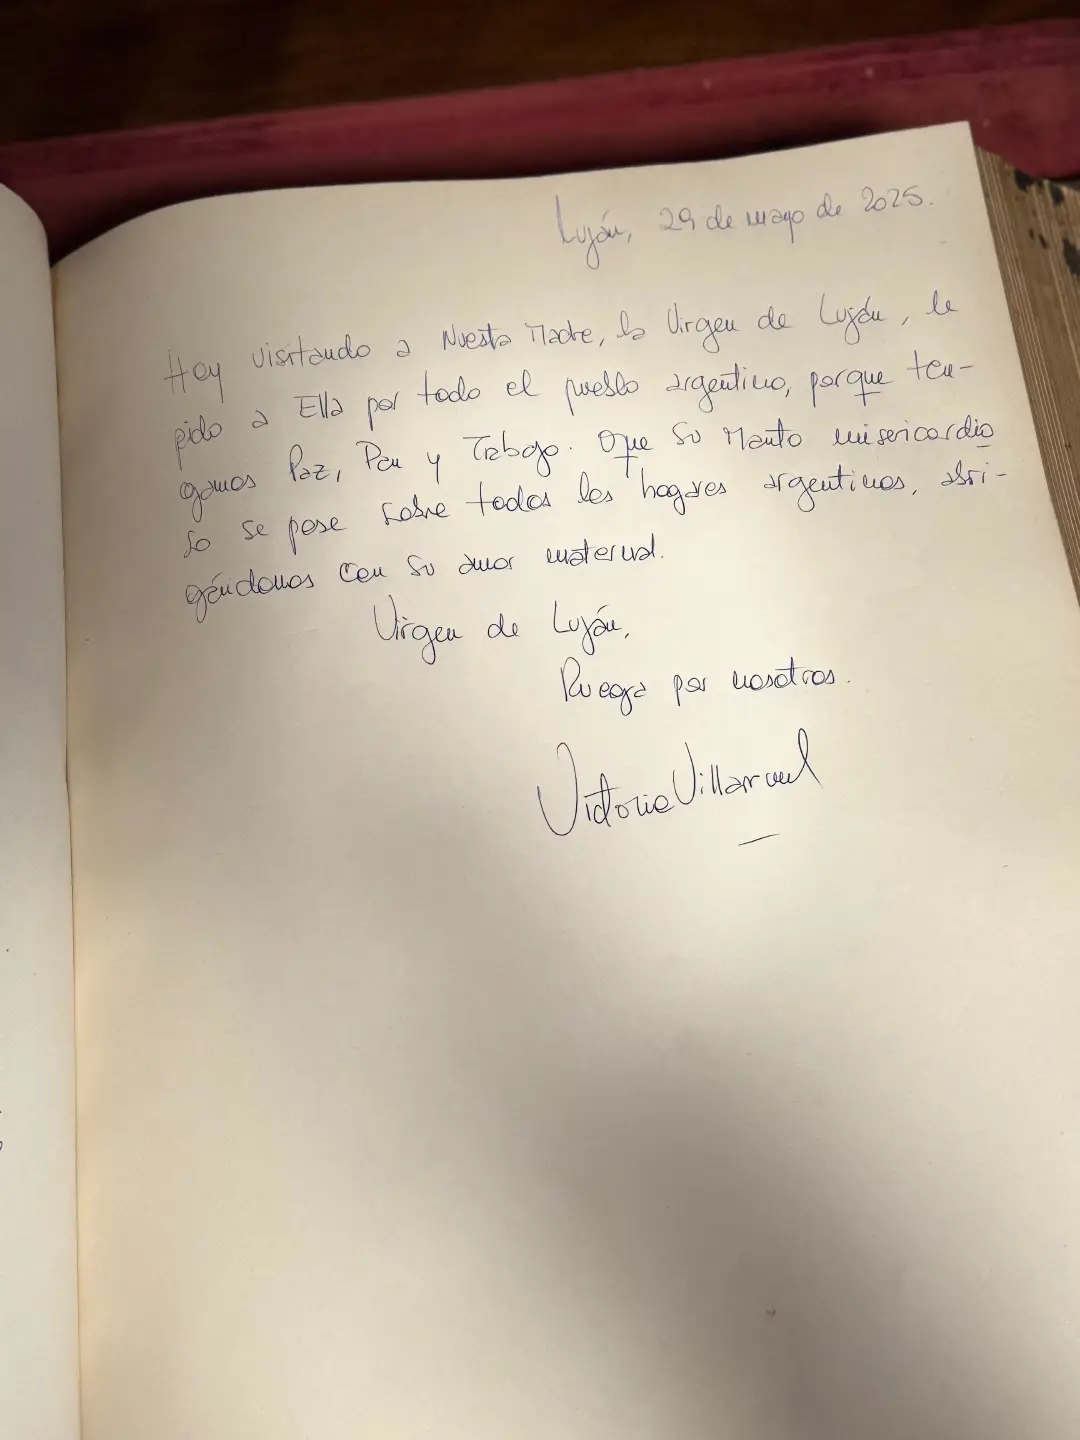 Luján, 29 de mayo de 2025.
Hoy visitando a Nuestra Madre, la Virgen de Luján, le
pido a Ella por todo el pueblo argentino, porque ten-
gamos Paz, Pan y Trabajo. Que Su Manto misericordio
so se pose sobre todos los hogares argentinos, abri-
gándonos con Su amor maternal.
Virgen de Luján,
Ruega por nosotros.
Victoria Villarruel